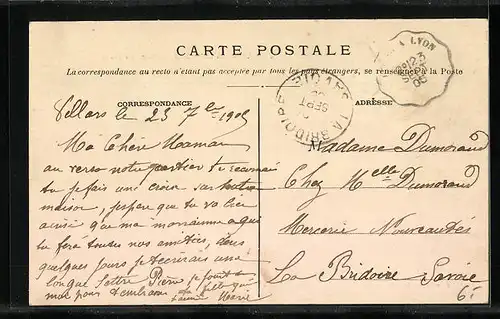 A LYON
23
SEPT
05
CARTE POSTALE
La correspondance au recto n'étant pas acceptée par tous les pays étrangers, se renseigner à la Poste
LA BRIDOIRE
SEPT
CORRESPONDANCE
ADRESSE
Villars le 23 7bre 1905
Ma Chère Maman
au verso notre quartier tu reconnaî
tu je fais une croix sur notre
maison, que tu vo bien
aussi que ma marraine a qui
tu fera toutes nos amitiés, dans
quelques jours je t'ecrirais une
longue lettre Pierre se joint a
moi pour t'embrasser ta fille qui
t'aime Marie
Madame Dumorand
Chez Melle Dumorand
Mercerie Nouveautés
La Bridoire Savoie
6.